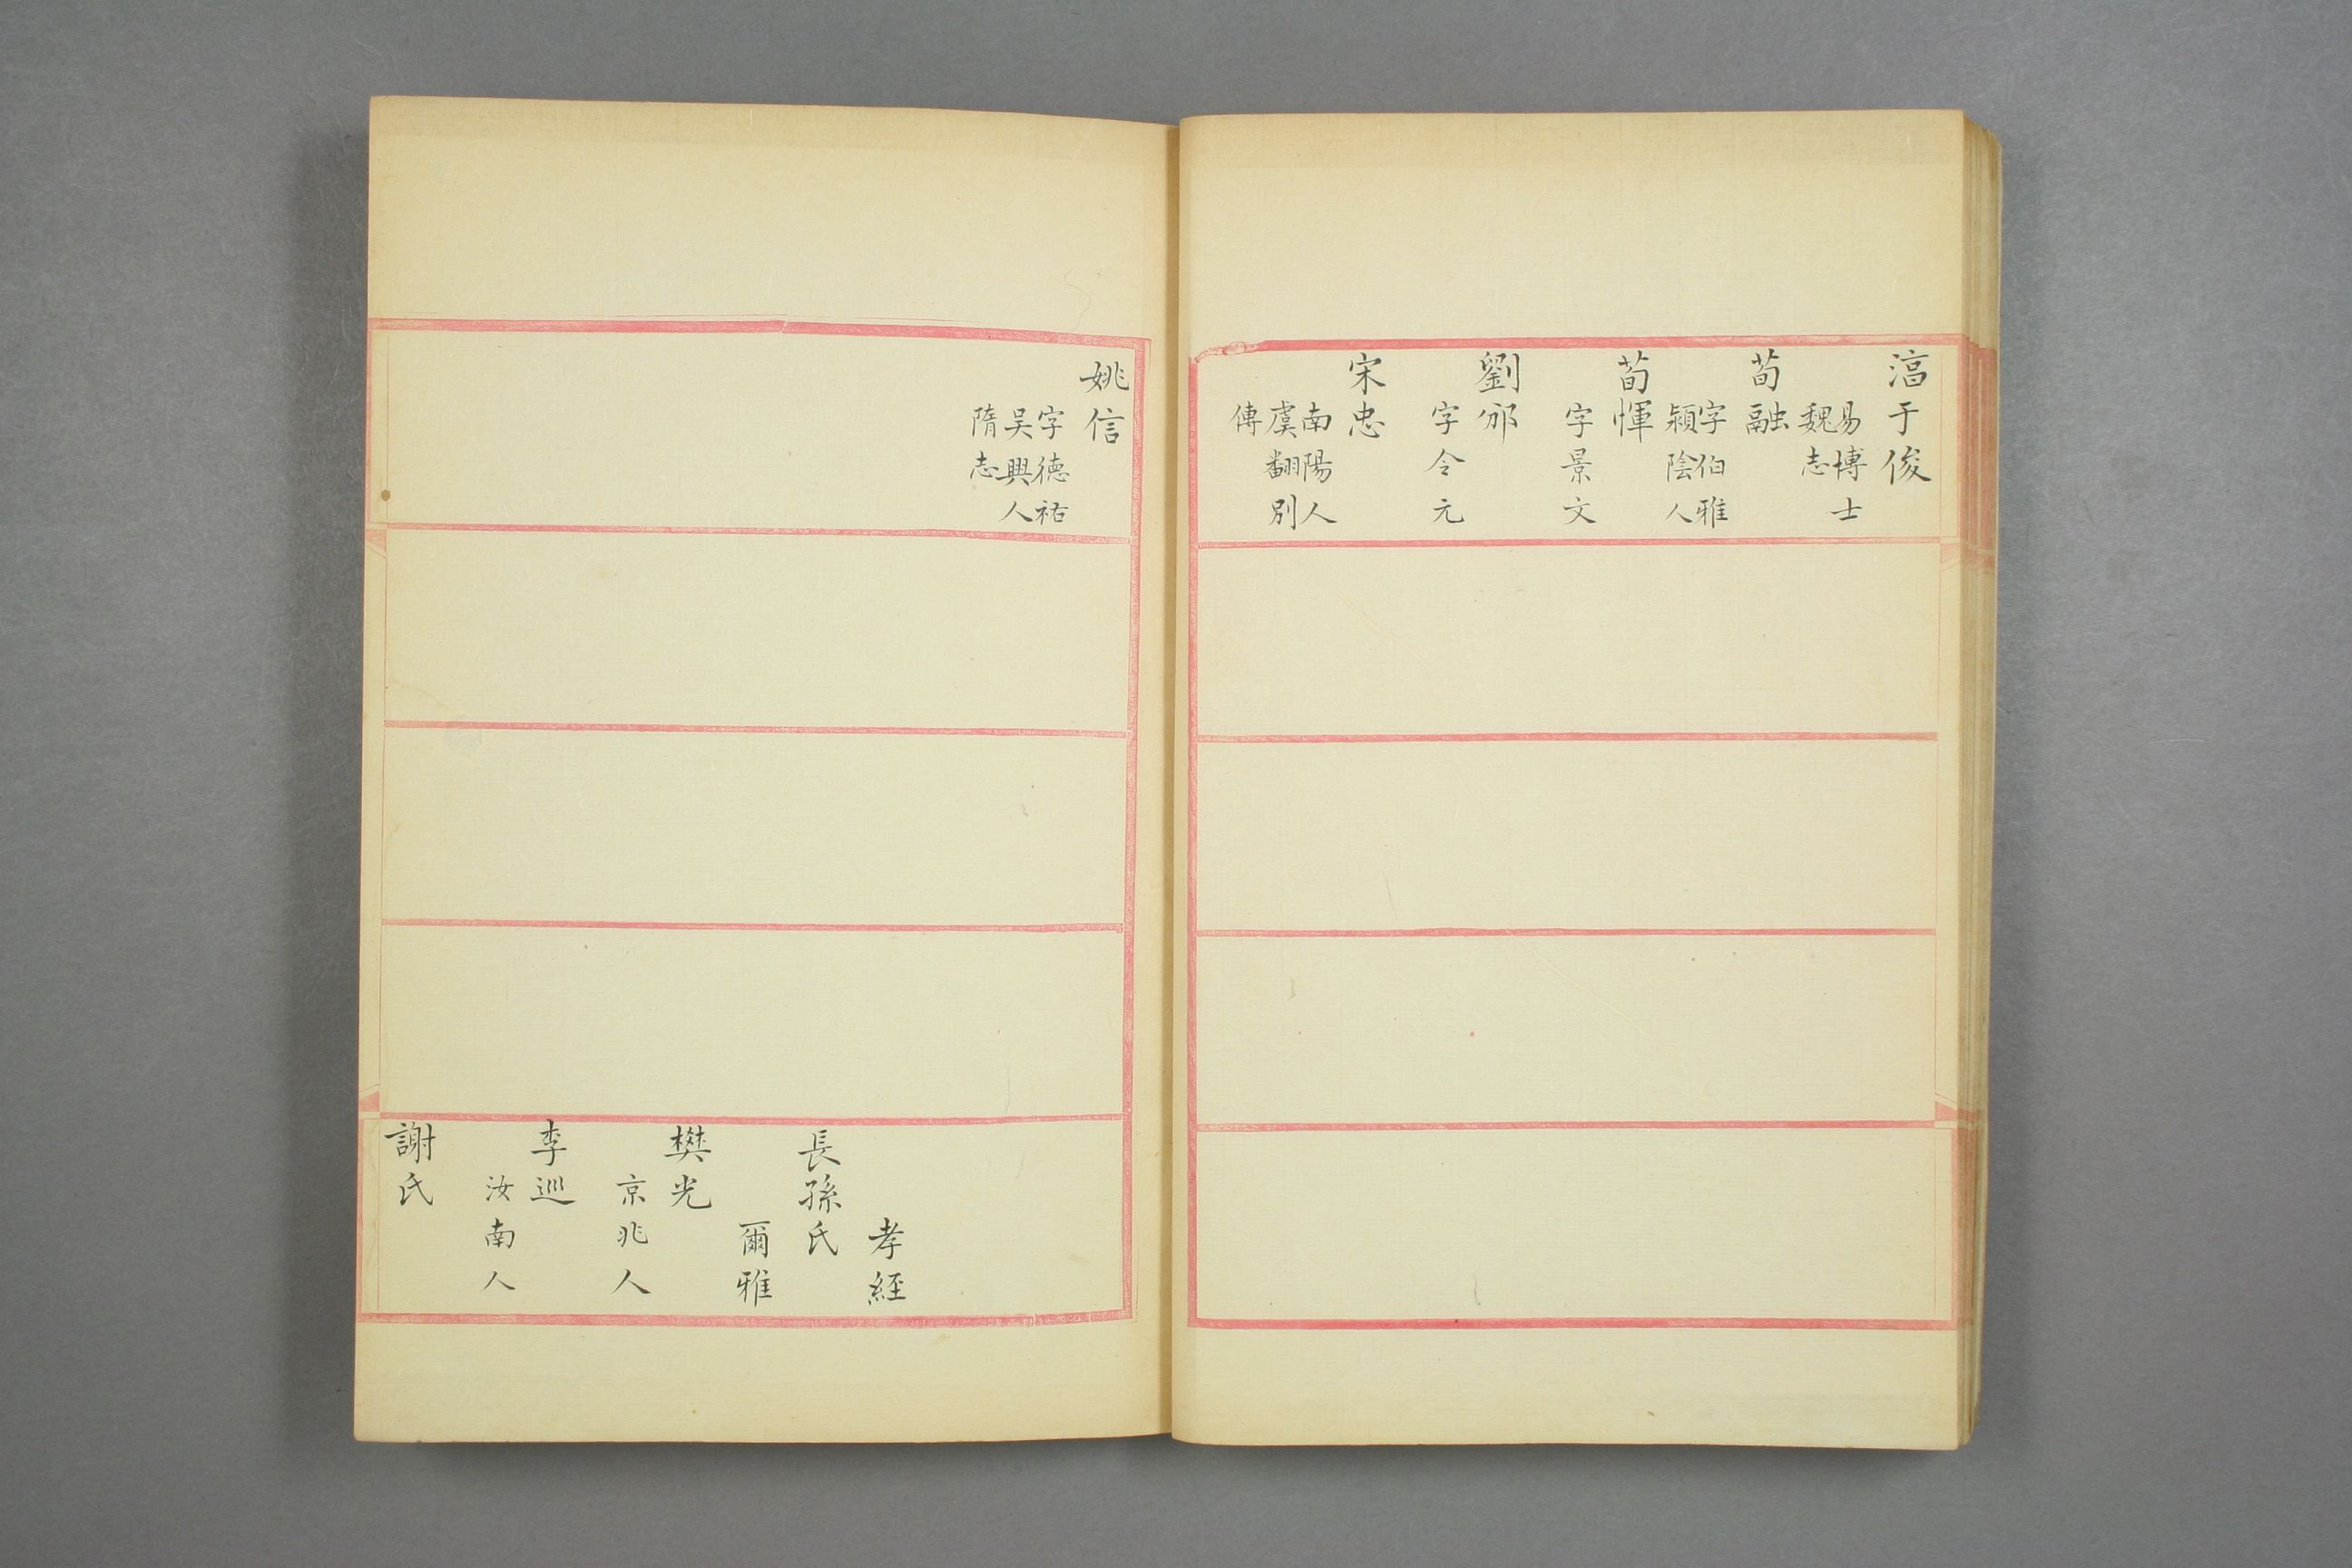 淳于俊
易博士
魏志
荀融
字伯雅
潁陰人
荀惲
字景文
劉邠
字令元
宋忠
南陽人
虞翻別
傳
姚信
字德祐
吳興人
隋志
孝經
長孫氏
爾雅
樊光
京兆人
李巡
汝南人
謝氏